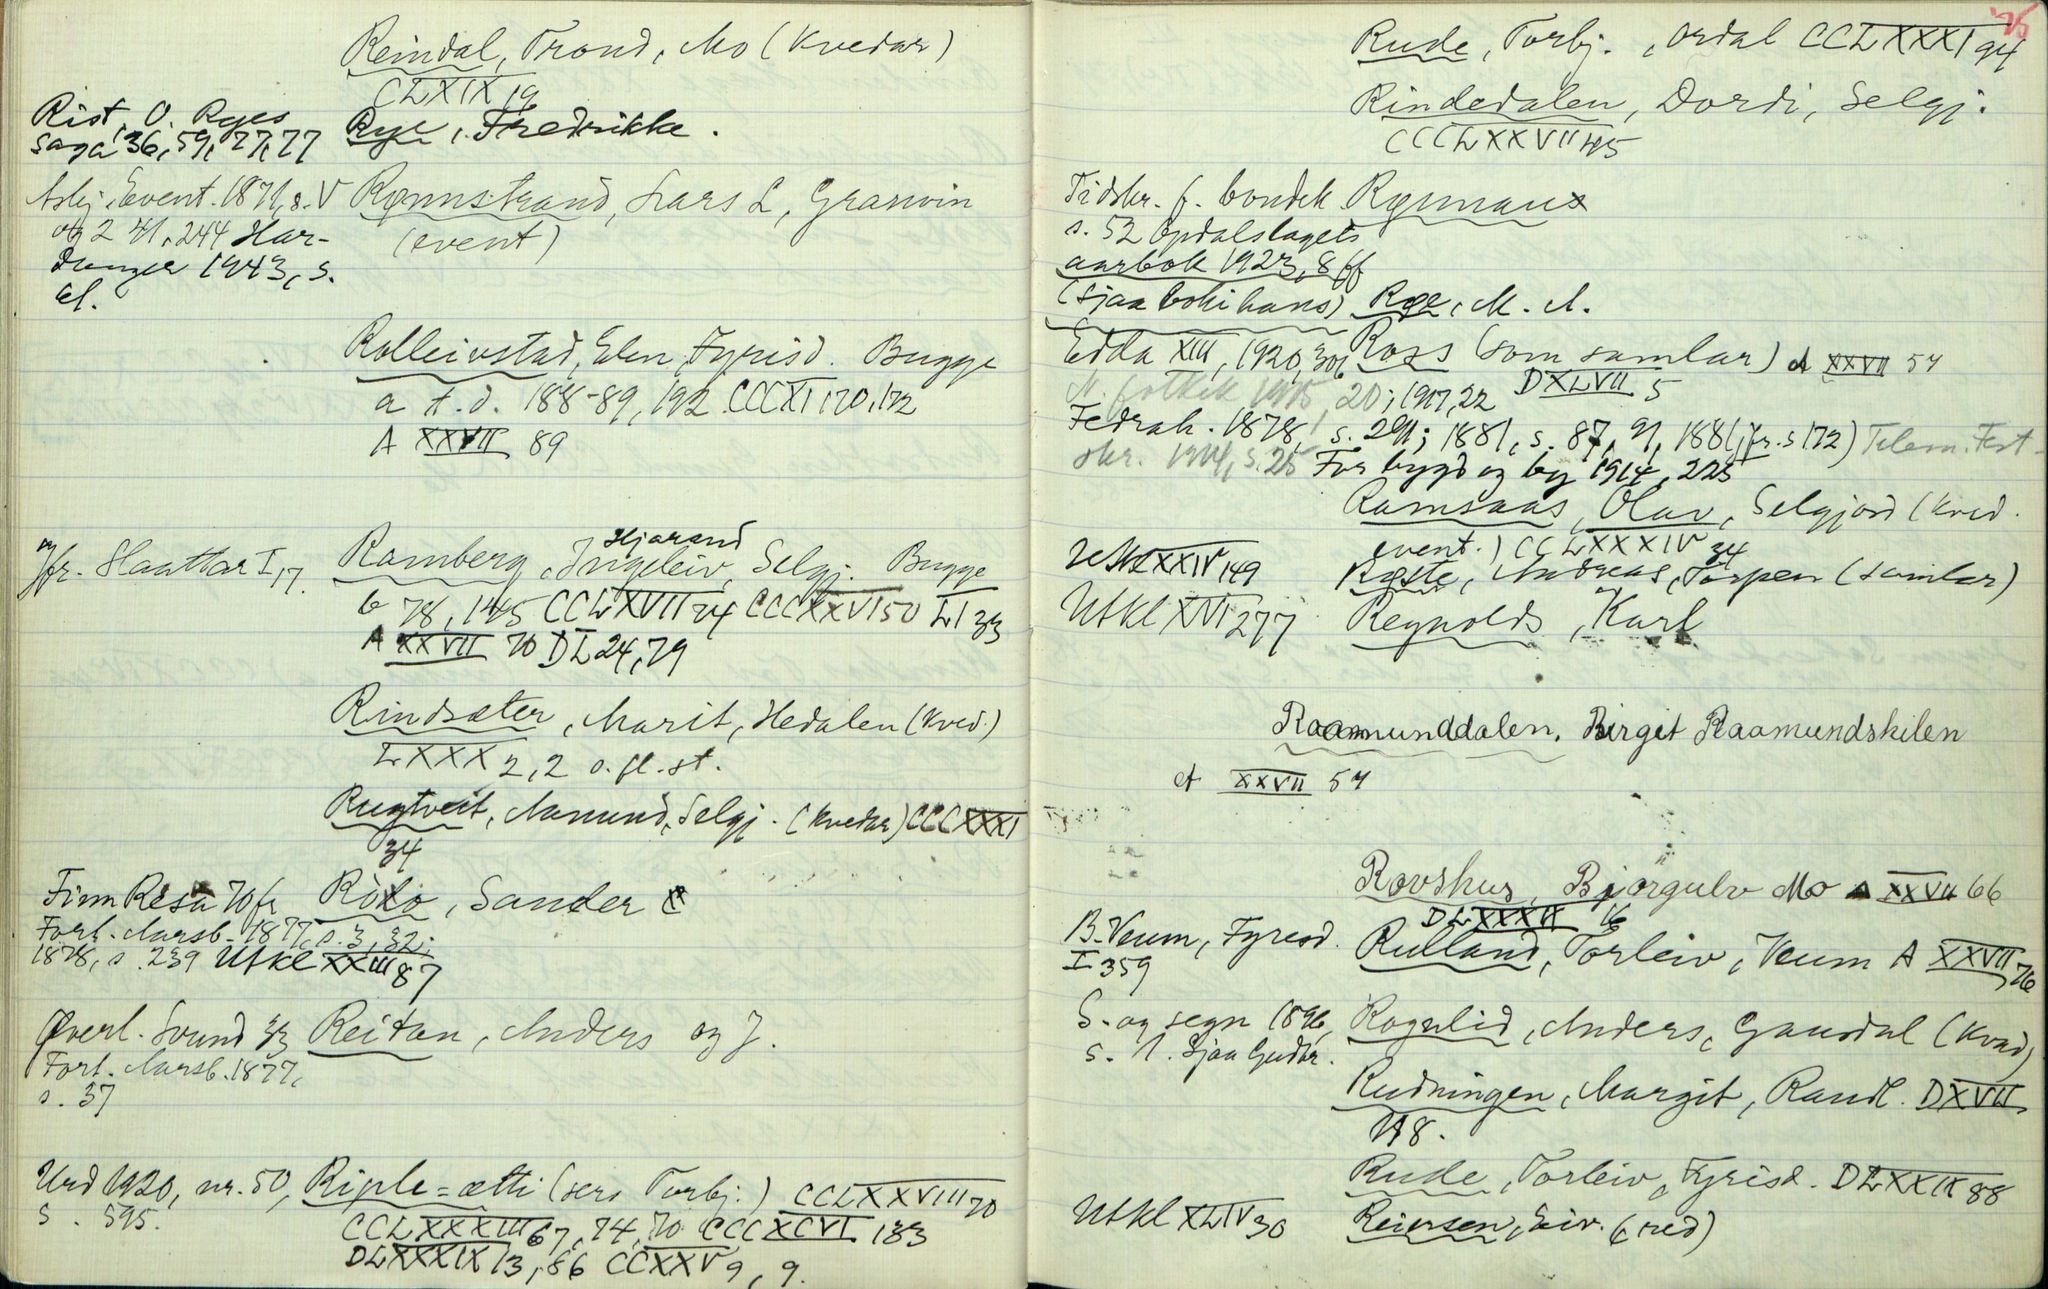 Reindal, Trond, Mo (Kvedar)
CLXIX 19
Rist, O. Ryes
saga '36, 59, 77, 77
Rye, Fredrikke.
Asbj. Event. 1871, s. V
og 241, 244 Har-
danger 1943, s.
61.
Rønnstrand, Lars L, Granvin
(event)
Rolleivstad, Elen, Fyrisd. Bugge
a t.d. 188-89, 192 CCCXI 170, 172
A XXVII 89
Jfr. Haattar I, 17.
Hjarand
Ramberg, Ingeleiv, Selgj. Bugge
b 78, 145 CCLXVII 24 CCCXXVI 50 LI 33
A XXVII 70 DL 24, 79
Rindsæter, Marit, Hedalen (Kved.)
LXXX 2, 2 o. fl. st.
Rugtveit, Aamund, Selgj. (Kvedar) CCCXXXI
34
Finn Resa 70 fr
Forl. Aarsb. 1877, s. 3, 32;
1878, s. 239 Utkl XXIII 87
Rolo, Sander
Øverl. Svund 33
Forl. Aarsb. 1877,
s. 37
Reitan, Anders og J.
Urd 1920, nr. 50,
s. 595.
Riple-ætti (sers Turbj.) CCLXXVIII 70
CCLXXXIII 67, 74, 70 CCCXCVI 183
DLXXXIX 13, 86 CCXXV 9, 9.
75
Rude, Torbj., Ordal CCLXXXI 94
Rindedalen, Dordi, Selgj.
CCCLXXVII 45
Tidskr. f. bondek
s. 52 Opdalslagets
aarbok 1923, 8 ff
(sjaa boki hans)
Rønnau
Rge, M. A.
Edda XIII, 1920, 306
Ross (som samlar) A XXVII 57
DXLVII 5
N. folkek 1915, 20; 1917, 22
Fedrah. 1878, s. 291; 1881, s. 87, 91, 1881, fr. s 172) Telem. Fest-
skr. 1914, s. 25 For bygd og by 1914, 225
Ramsaas, Olav, Selgjord (Kved.
event.) CCLXXXIV 34
Utkl XXIV 149
Røste, Andreas, Torpen (samlar)
Utkl XVI 277
Reynolds, Karl
Raamunddalen, Birgit Raamundskilen
A XXVII 57
Rovshus, Bjørgulv Mo A XXVII 66
DLXXXIX 16
B. Veum, Fyresd.
I 359
Rulland, Torleiv, Veum A XXVII 76
S. og segn 1896,
s. 1. Sjaa Gudbr.
Rognlid, Anders, Gausdal (Kvad)
Rudningen, Margit, Raudl. DXVII
118.
Rude, Torleiv, Fyrisd. DLXXIX 88
Utkl XLIV 30
Reiersen, Eiv. (red)